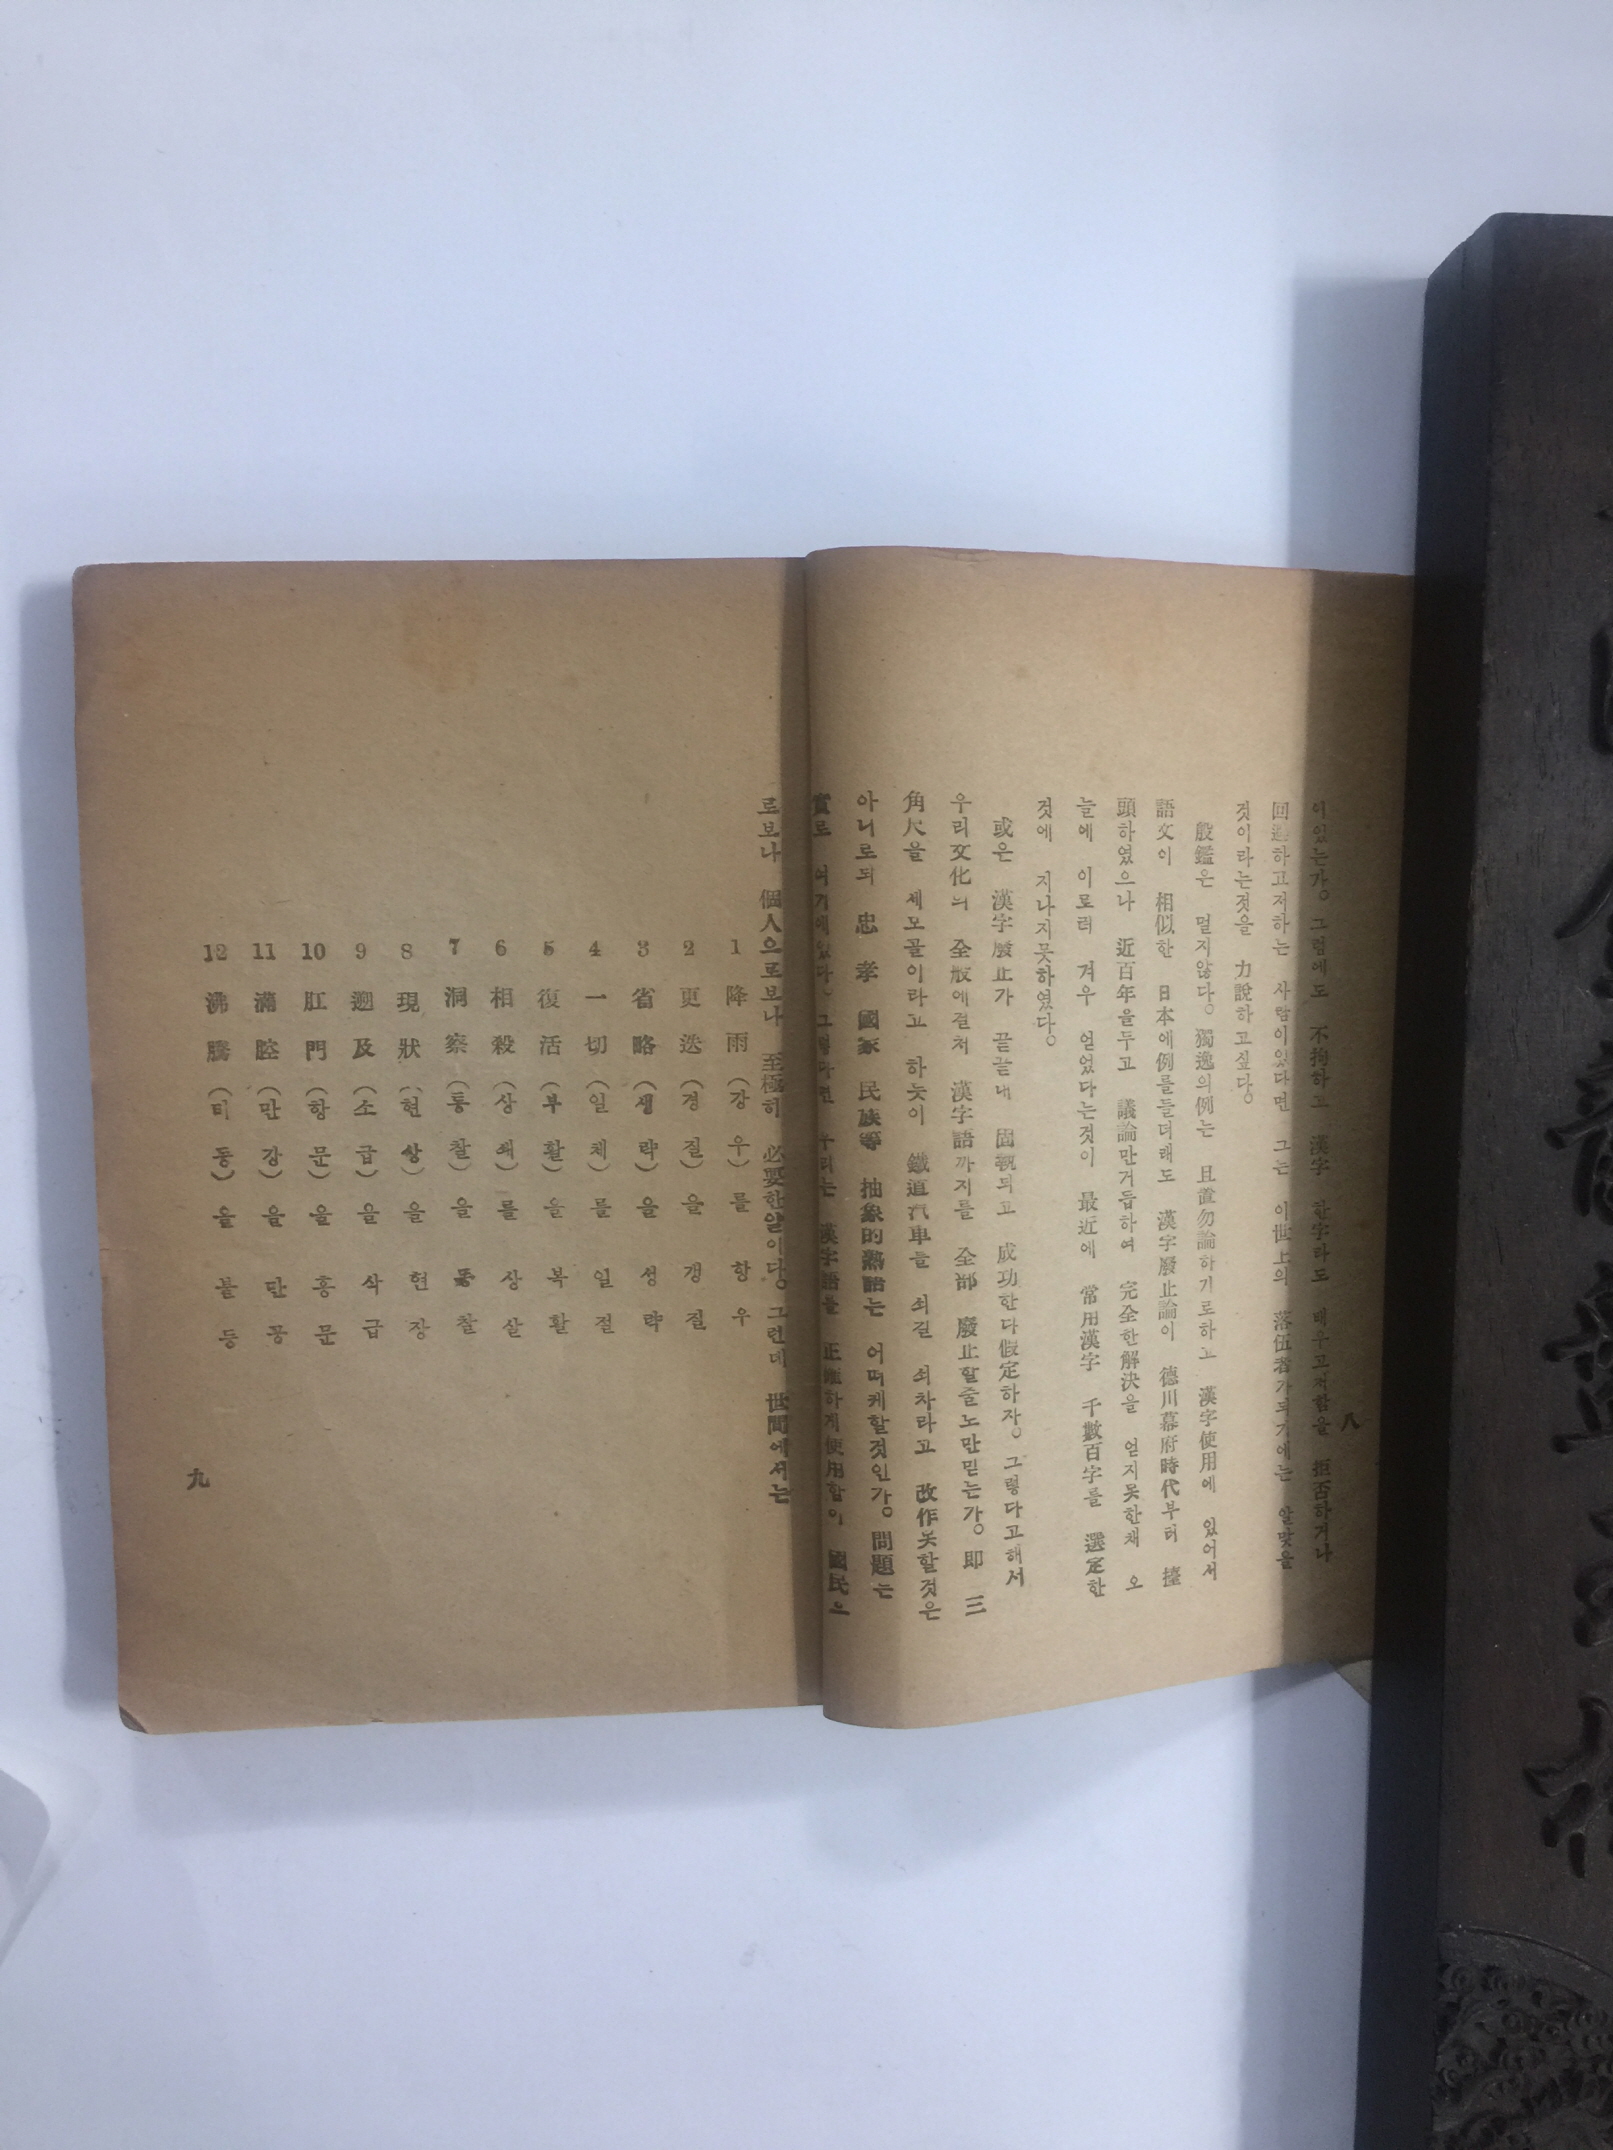 八
이있는가。그럼에도 不拘하고 漢字 한字라도 배우고저함을 拒否하거나
回避하고저하는 사람이있다면 그는 이世上의 落伍者가되기에는 알맞을
것이라는것을 力說하고싶다。
殷鑑은 멀지않다。獨逸의例는 且置勿論하기로하고 漢字使用에 있어서
語文이 相似한 日本에例를들더래도 漢字廢止論이 德川幕府時代부터 擡
頭하였으나 近百年을두고 議論만거듭하여 完全한解決을 얻지못한채 오
늘에 이르러 겨우 얻었다는것이 最近에 常用漢字 千數百字를 選定한
것에 지나지못하였다。
或은 漢字廢止가 끝끝내 固執되고 成功한다假定하자。그렇다고해서
우리文化의 全般에걸처 漢字語까지를 全部 廢止할줄노만믿는가。即 三
角尺을 세모골이라고 하듯이 鐵道汽車를 쇠길 쇠차라고 改作못할것은
아니로되 忠 孝 國家 民族等 抽象的熟語는 어떠케할것인가。問題는
實로 여기에있다、그렇다면 우리는 漢字語를 正確하게使用함이 國民으
로보나 個人으로보나 至極히 必要한일이다。그런데 世間에서는
1 降雨(강우)를 항우
2 更迭(경질)을 갱질
3 省略(생략)을 성략
4 一切(일체)를 일절
5 復活(부활)을 복활
6 相殺(상쇄)를 상살
7 洞察(통찰)을 동찰
8 現狀(현상)을 현장
9 遡及(소급)을 삭급
10 肛門(항문)을 홍문
11 滿腔(만강)을 만공
12 沸騰(비등)을 불등
九